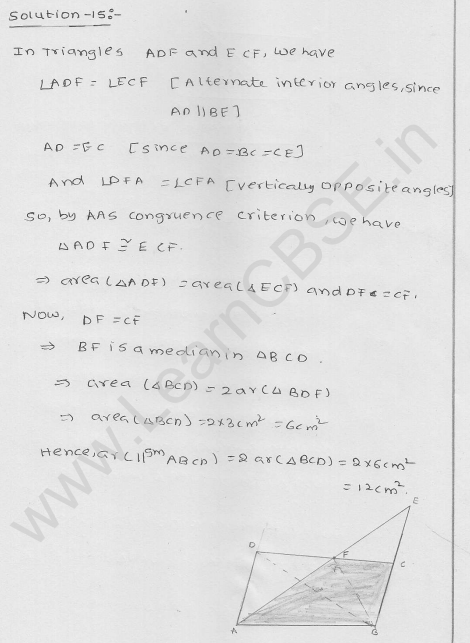 Solution-15:-
In Triangles ADF and ECF, we have
∠ADF = ∠ECF [Alternate interior angles, since
AD || BE]
AD = EC [since AD = BC = CE]
And ∠DFA = ∠CFA [vertically opposite angles]
So, by AAS congruence criterion, we have
△ADF ≅ ECF.
⇒ area(△ADF) = area(△ECF) and DF = CF.
Now, DF = CF
⇒ BF is a median in △BCD.
⇒ area (△BCD) = 2ar(△BDF)
⇒ area(△BCD) = 2×3cm² = 6cm²
Hence, ar(||gm ABCD) = 2 ar(△BCD) = 2×6cm²
= 12cm².
E
D
F
C
A
B
www.LearnCBSE.in